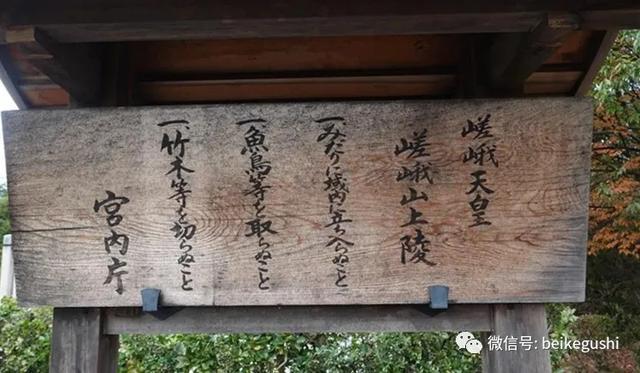 嵯峨天皇
嵯峨山上陵
一、みだりに域内に立ち入らぬこと
一、魚鳥等を取らぬこと
一、竹木等を切らぬこと
宮内庁
微信号: beikegushi